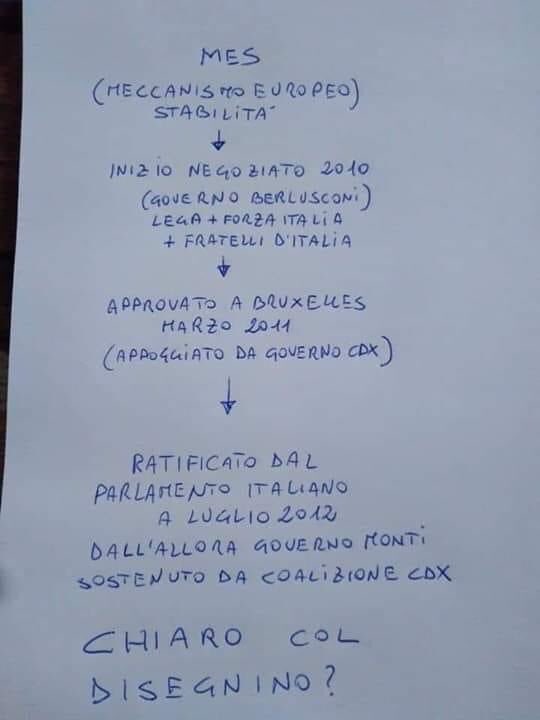 MES
(MECCANISMO EUROPEO)
STABILITA'
INIZIO NEGOZIATO 2010
(GOVERNO BERLUSCONI)
LEGA + FORZA ITALIA
+ FRATELLI D'ITALIA
APPROVATO A BRUXELLES
MARZO 2011
(APPOGGIATO DA GOVERNO CDX)
RATIFICATO DAL
PARLAMENTO ITALIANO
A LUGLIO 2012
DALL'ALLORA GOVERNO MONTI
SOSTENUTO DA COALIZIONE CDX
CHIARO COL
DISEGNINO?